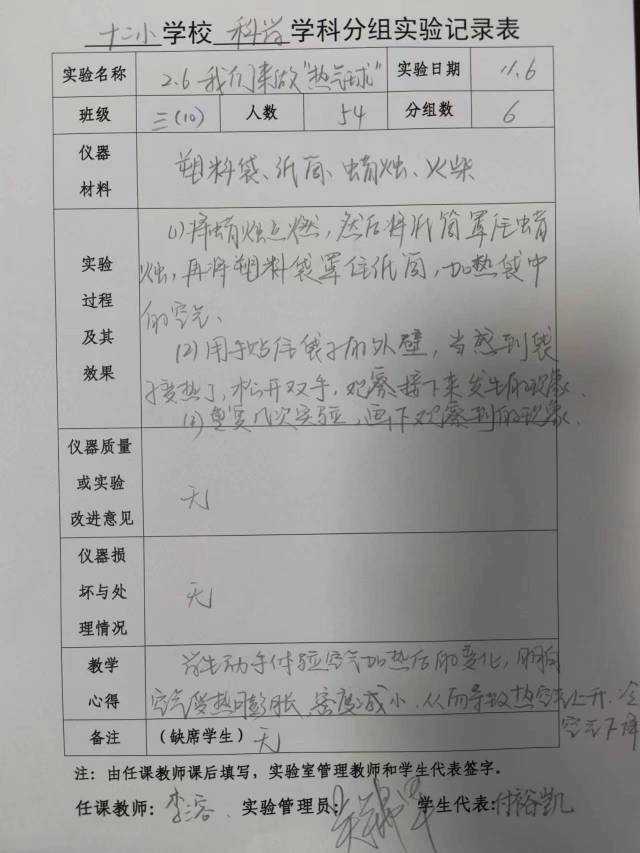 十二小学校 科学学科分组实验记录表
实验名称 2.6 我们来做"热气球" 实验日期 11.6
班级 三(10) 人数 54 分组数 6
仪器材料 塑料袋、纸筒、蜡烛、火柴
实验过程及其效果
(1)将蜡烛点燃,然后将纸筒罩住蜡
烛,再将塑料袋罩住纸筒,加热袋中
的空气、
(2)用手贴住袋子的外壁,当感到袋
子变热了,松开双手,观察接下来发生的现象.
(3)重复几次实验,画下观察到的现象.
仪器质量或实验改进意见 无
仪器损坏与处理情况 无
教学心得
学生动手体验空气加热后的变化,明白
空气受热时膨胀、密度减小、从而导致热空气上升.冷
空气下降
备注 (缺席学生) 无
注:由任课教师课后填写,实验室管理教师和学生代表签字。
任课教师: 李溶. 实验管理员: 学生代表:付裕凯